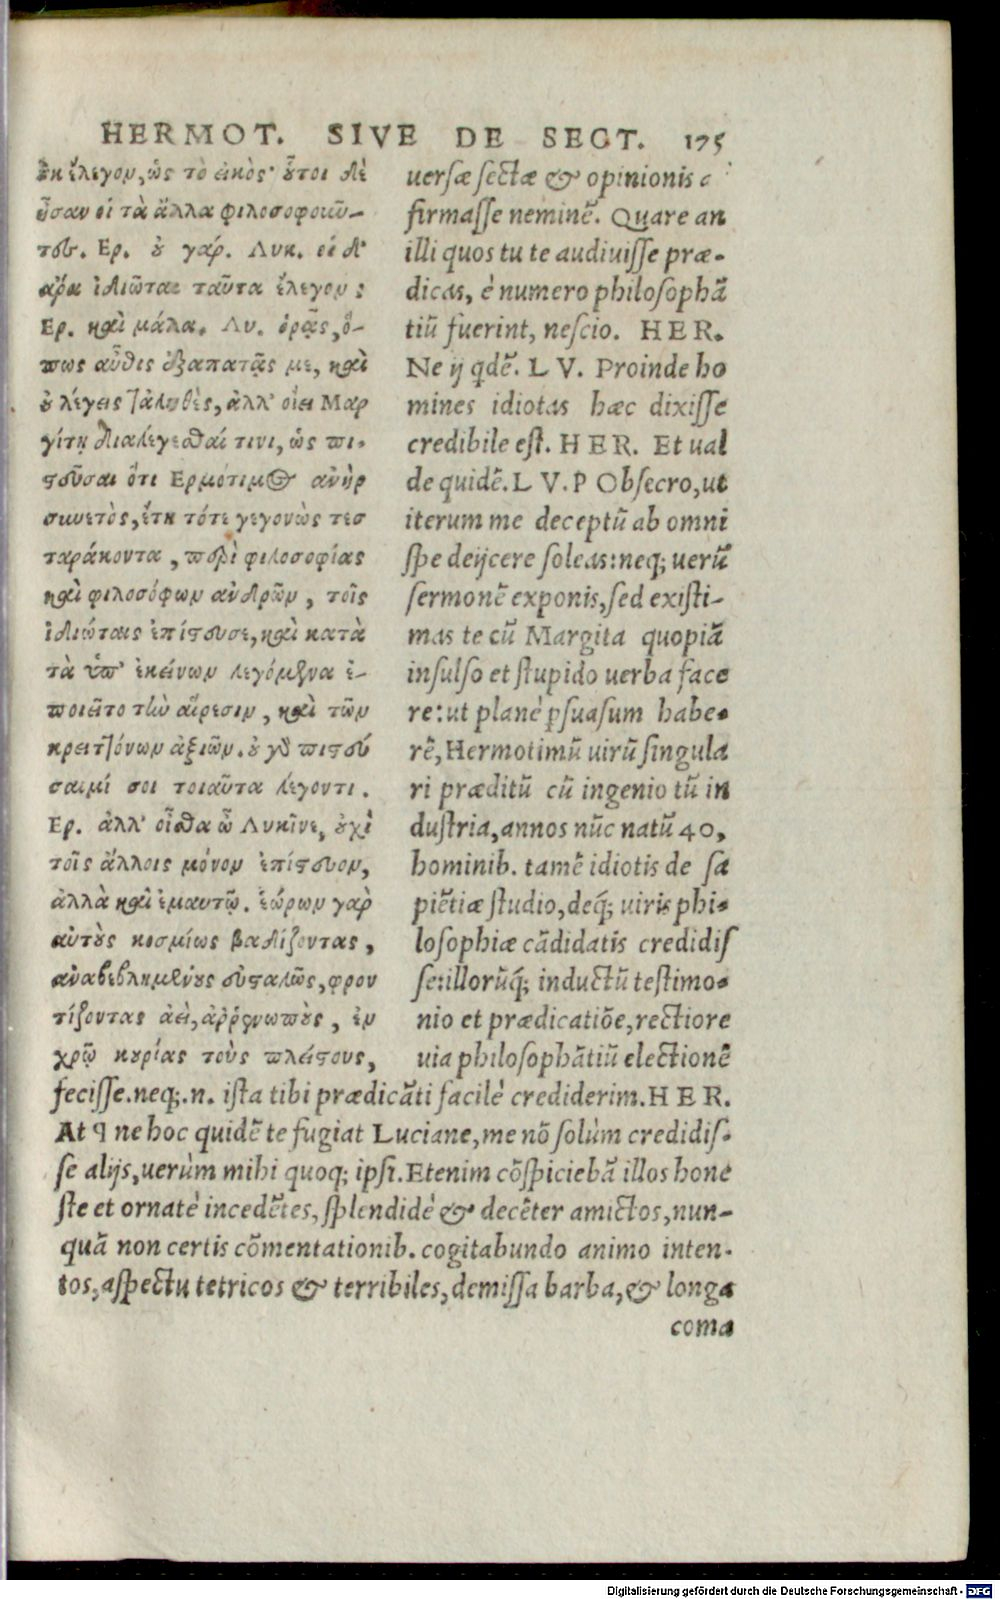 HERMOT. SIVE DE SECT. 175
ἐκ ἔλεγον, ὡς τὸ εἰκὸς· ὗτοι δὲ
ἦσαν οἱ τὰ ἄλλα φιλοσοφοιῦ-
τες. Ερ. ὐ γάρ. Λυκ. οἱ δ'
ἄρα ἰδιῶται ταῦτα ἔλεγον;
Ερ. καὶ μάλα. Λυ. ὁρᾷς, ὅ-
πως αὖθις ἐξαπατᾷς με, καὶ
ὐ λέγεις τἀληθὲς, ἀλλ' οἴει Μαρ
γίτῃ διαλέγεσθαί τινι, ὡς πι-
στεῦσαι ὅτι Ερμότιμος ἀνὴρ
συνετὸς, ἔτη τότε γεγονὼς τεσ
ταράκοντα, περὶ φιλοσοφίας
καὶ φιλοσόφων ἀνδρῶν, τοῖς
ἰδιώταις ἐπίστευσε, καὶ κατὰ
τὰ ὑπ' ἐκείνων λεγόμενα ἐ-
ποιεῖτο τὴν αἵρεσιν, καὶ τῶν
κρειττόνων ἀξιῶν. ὐ γὰρ πιστεύ
σαιμί σοι τοιαῦτα λέγοντι.
Ερ. ἀλλ' οἶσθα ὦ Λυκῖνε, ὐχὶ
τοῖς ἄλλοις μόνον ἐπίστευον,
ἀλλὰ καὶ ἐμαυτῷ. ἑώρων γὰρ
αὐτὺς κοσμίως βαδίζοντας,
ἀναβεβλημένυς εὐσταλῶς, φρον
τίζοντας ἀεὶ, ἀῤῥενωπὺς, ἐν
χρῷ κυρίας τοὺς πλείστους,
uersæ sectæ & opinionis
firmasse neminē. Quare an
illi quos tu te audiuisse præ-
dicas, è numero philosophā
tiū fuerint, nescio. HER.
Ne ij qdē. L V. Proinde ho
mines idiotas hæc dixisse
credibile est. H E R. Et ual
de quidē. L V. P Obsecro, ut
iterum me deceptū ab omni
spe deijcere soleas: neq; uerū
sermonē exponis, sed existi-
mas te cū Margita quopiā
insulso et stupido uerba face
re: ut planè psuasum habe-
rē, Hermotimū uirū singula
ri præditū cū ingenio tū in
dustria, annos nūc natū 40,
hominib. tamē idiotis de sa
piētiæ studio, deq́; uiris phi-
losophiæ cādidatis credidis
se: illorūq́; inductū testimo-
nio et prædicatiōe, rectiore
uia philosophātiū electionē
fecisse. neq;.n. ista tibi prædicāti facilè crediderim. H E R.
At ¶ ne hoc quidē te fugiat Luciane, me nō solùm credidis-
se alijs, uerùm mihi quoq; ipsi. Etenim cōspiciebā illos hone
ste et ornatè incedētes, splendidè & decēter amictos, nun-
quā non certis cōmentationib. cogitabundo animo inten-
tos, aspectu tetricos & terribiles, demissa barba, & longa
coma
Digitalisierung gefördert durch die Deutsche Forschungsgemeinschaft - DFG